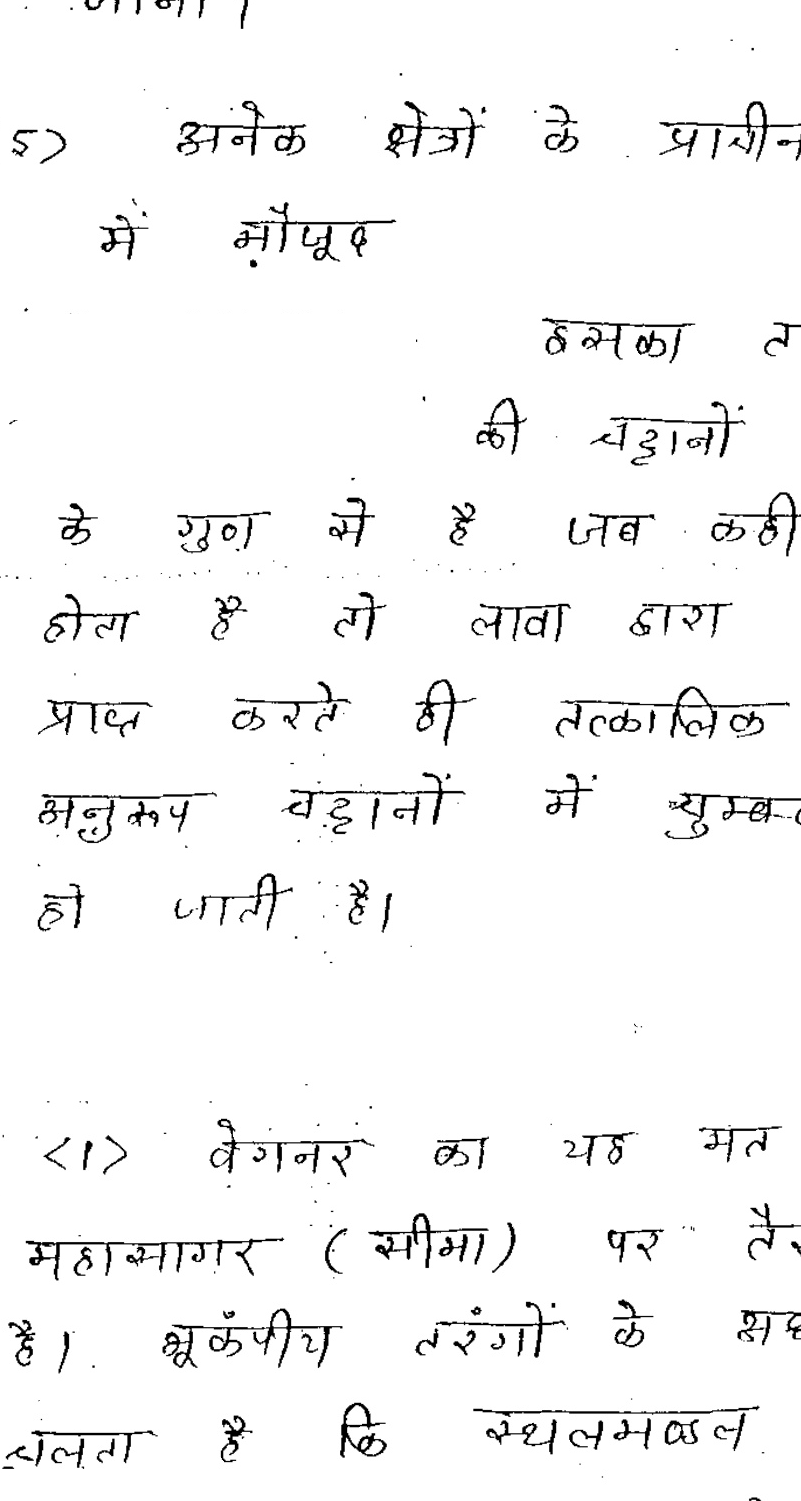 5) अनेक क्षेत्रों के प्राचीन
में मौजूद
इसका त
की चट्टानों
के गुण से है जब कही
होता है तो लावा द्वारा
प्राप्त करते ही तत्कालिक
अनुरूप चट्टानों में चुम्ब
हो जाती है।
<1> वेगनर का यह मत
महासागर (सीमा) पर तै
है। भूकँपीय तरंगों के
चलता है कि स्थलमण्डल